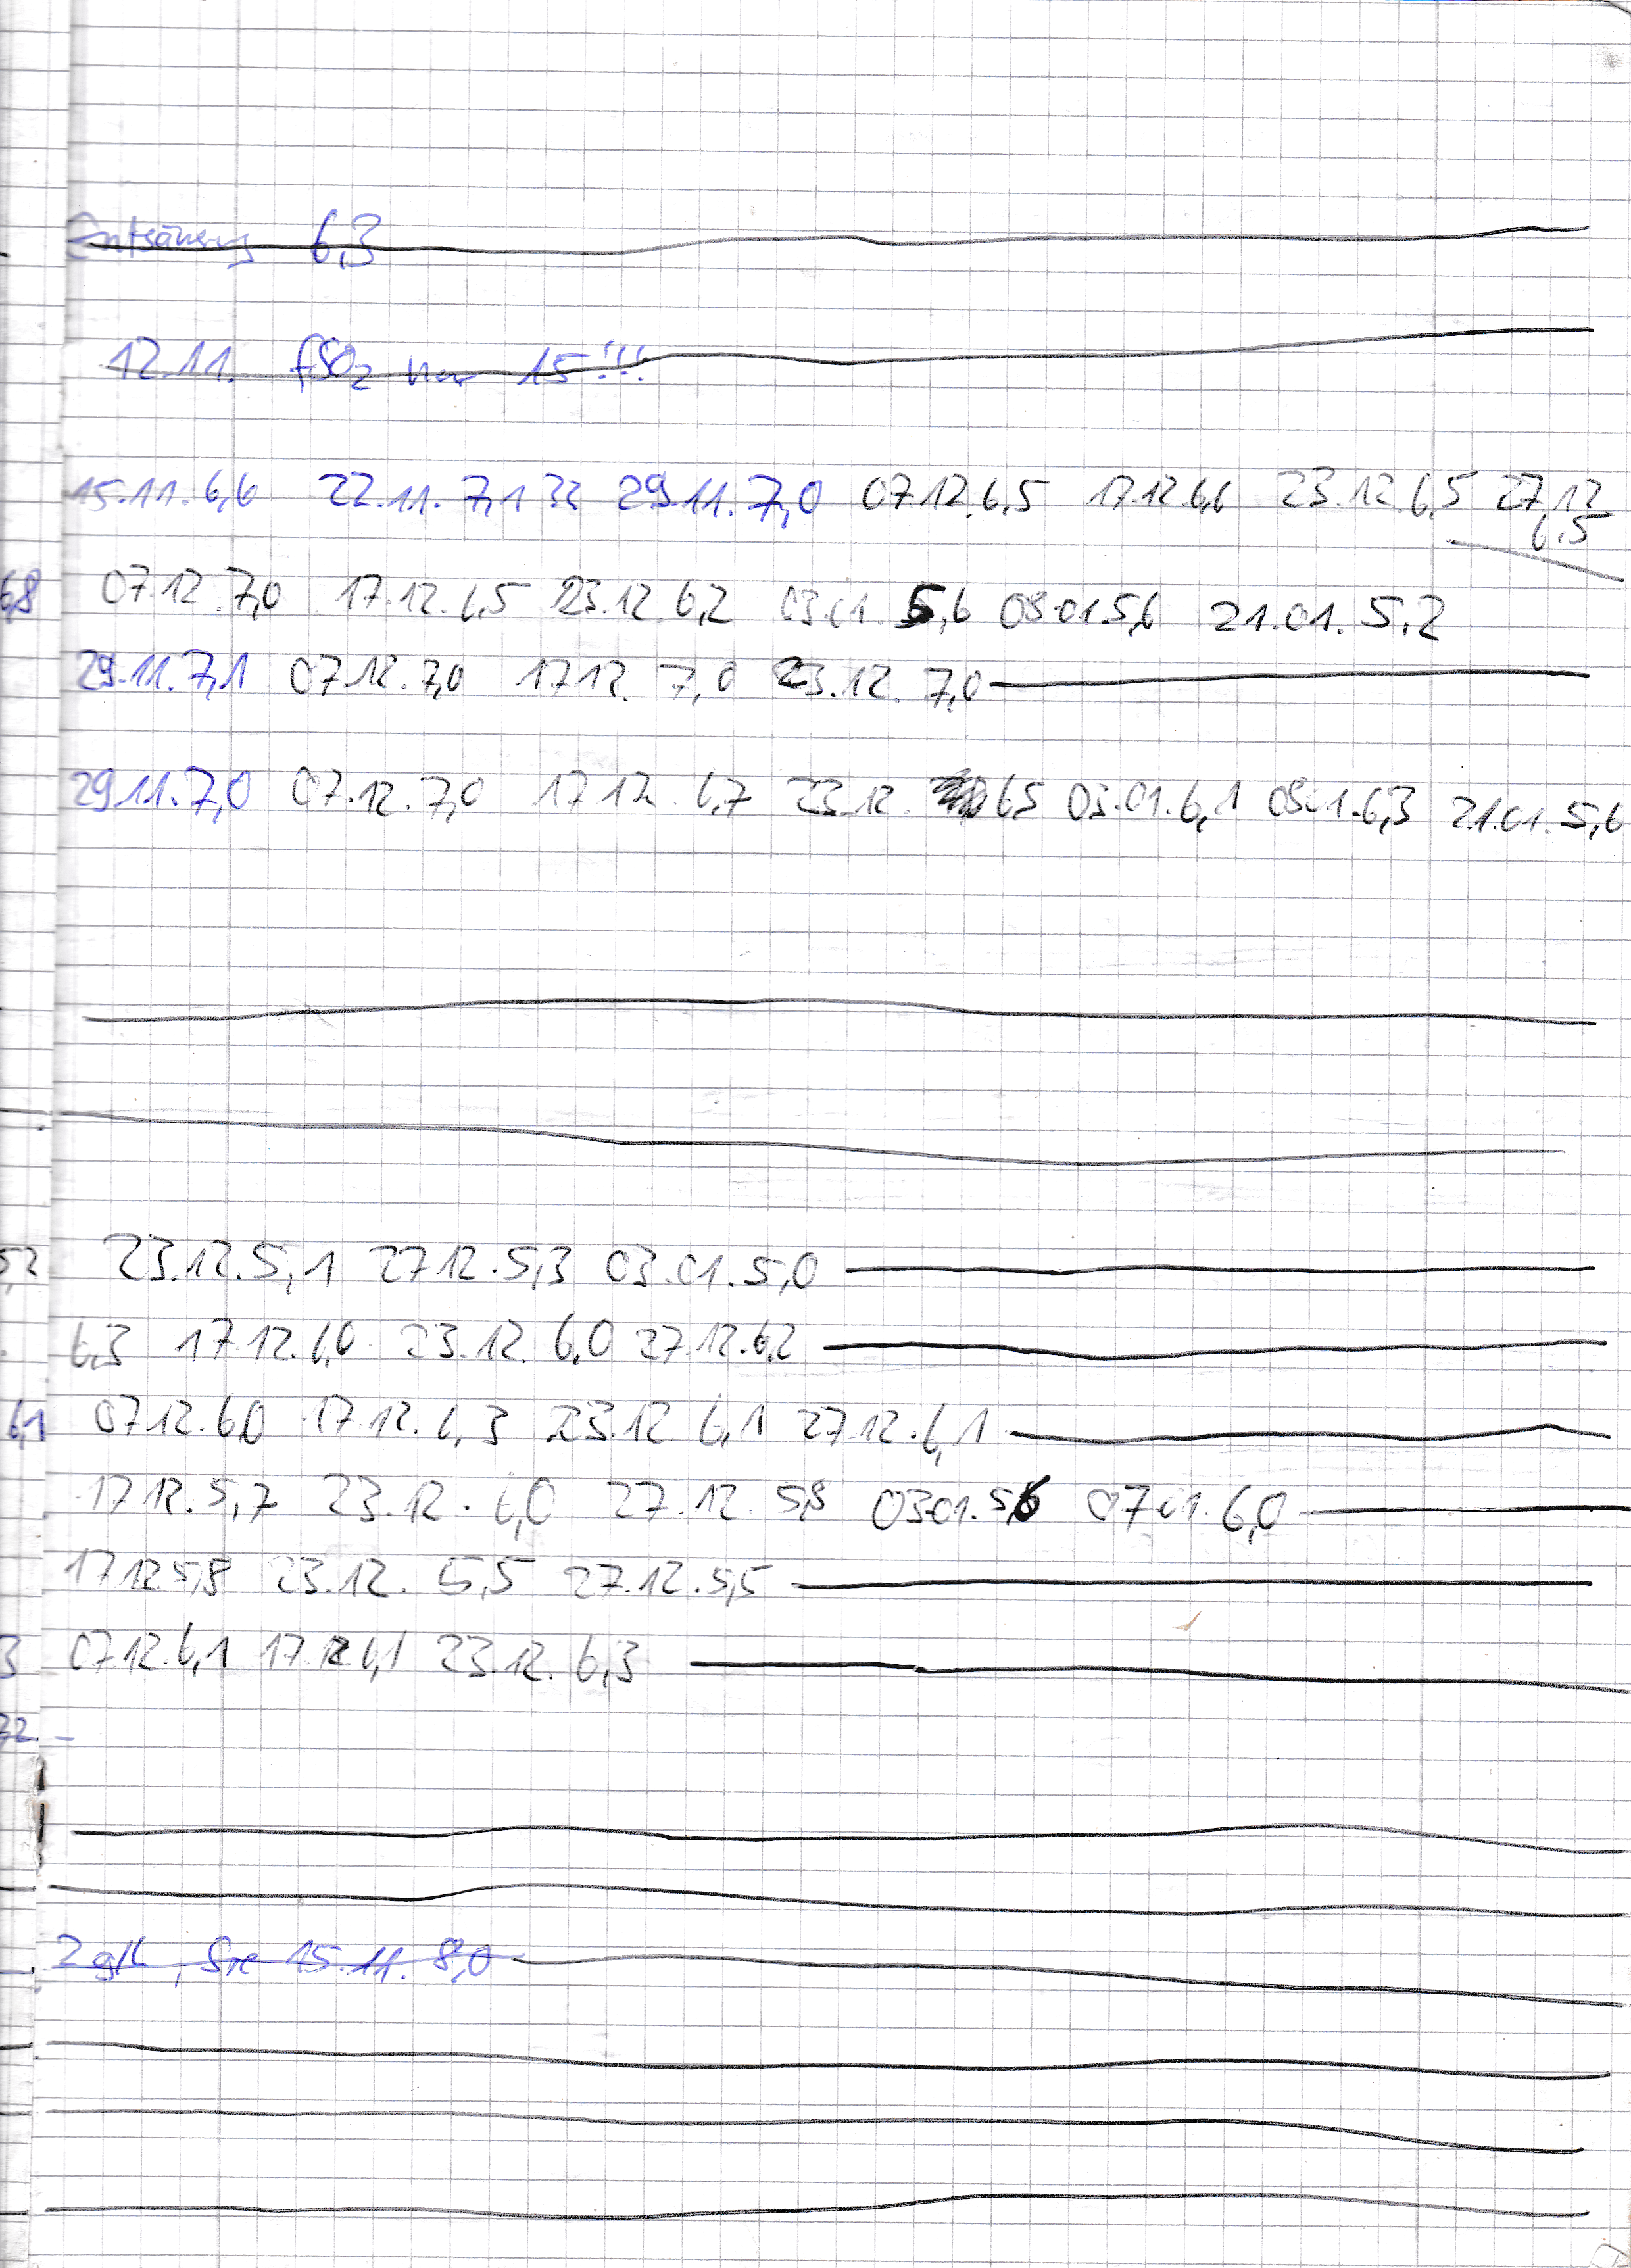 Entsäuerung 6,3
12.11. fSO2 nur 15!!!
15.11. 6,6 22.11. 7,1 ?? 29.11. 7,0 07.12. 6,5 17.12. 6,6 23.12. 6,5 27.12
6,5
6,8 07.12. 7,0 17.12. 6,5 23.12. 6,2 03.01. 5,6 08.01. 5,6 21.01. 5,2
29.11. 7,1 07.12. 7,0 17.12. 7,0 23.12. 7,0
29.11. 7,0 07.12. 7,0 17.12. 6,7 23.12. 6,5 03.01. 6,1 08.01. 6,3 21.01. 5,6
5,2 23.12. 5,1 27.12. 5,3 03.01. 5,0
6,3 17.12. 6,0 23.12. 6,0 27.12. 6,2
6,1 07.12. 6,0 17.12. 6,3 23.12. 6,1 27.12. 6,1
17.12. 5,7 23.12. 6,0 27.12. 5,8 03.01. 5,6 07.01. 6,0
17.12. 5,8 23.12. 5,5 27.12. 5,5
3 07.12. 6,1 17.12. 6,1 23.12. 6,3
72 -
2 g/L, 15.11. 8,0